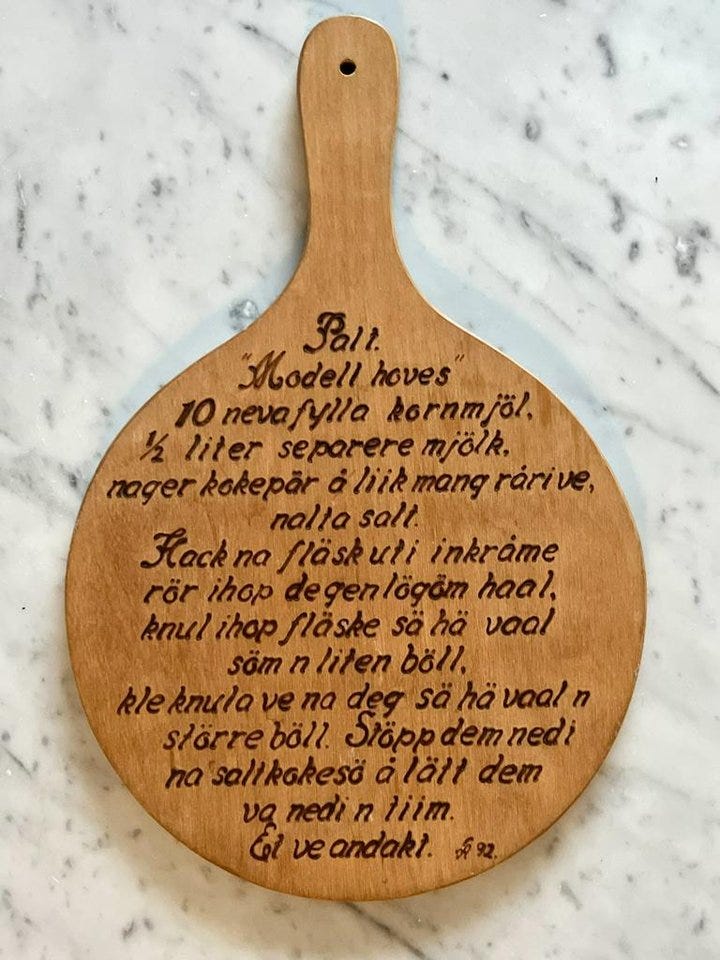 Palt.
"Modell hoves"
10 nevafylla kornmjöl,
½ liter separere mjölk,
nager kokepär å liik mang rårive,
nalta salt.
Hack na fläsk uti inkråme
rör ihop degen lögöm haal,
knul ihop fläske sä hä vaal
söm n liten böll,
kle knula ve na deg sä hä vaal n
större böll. Stöpp dem nedi
na saltkokesö å lätt dem
va nedi n tiim.
Et ve andakt. 92.